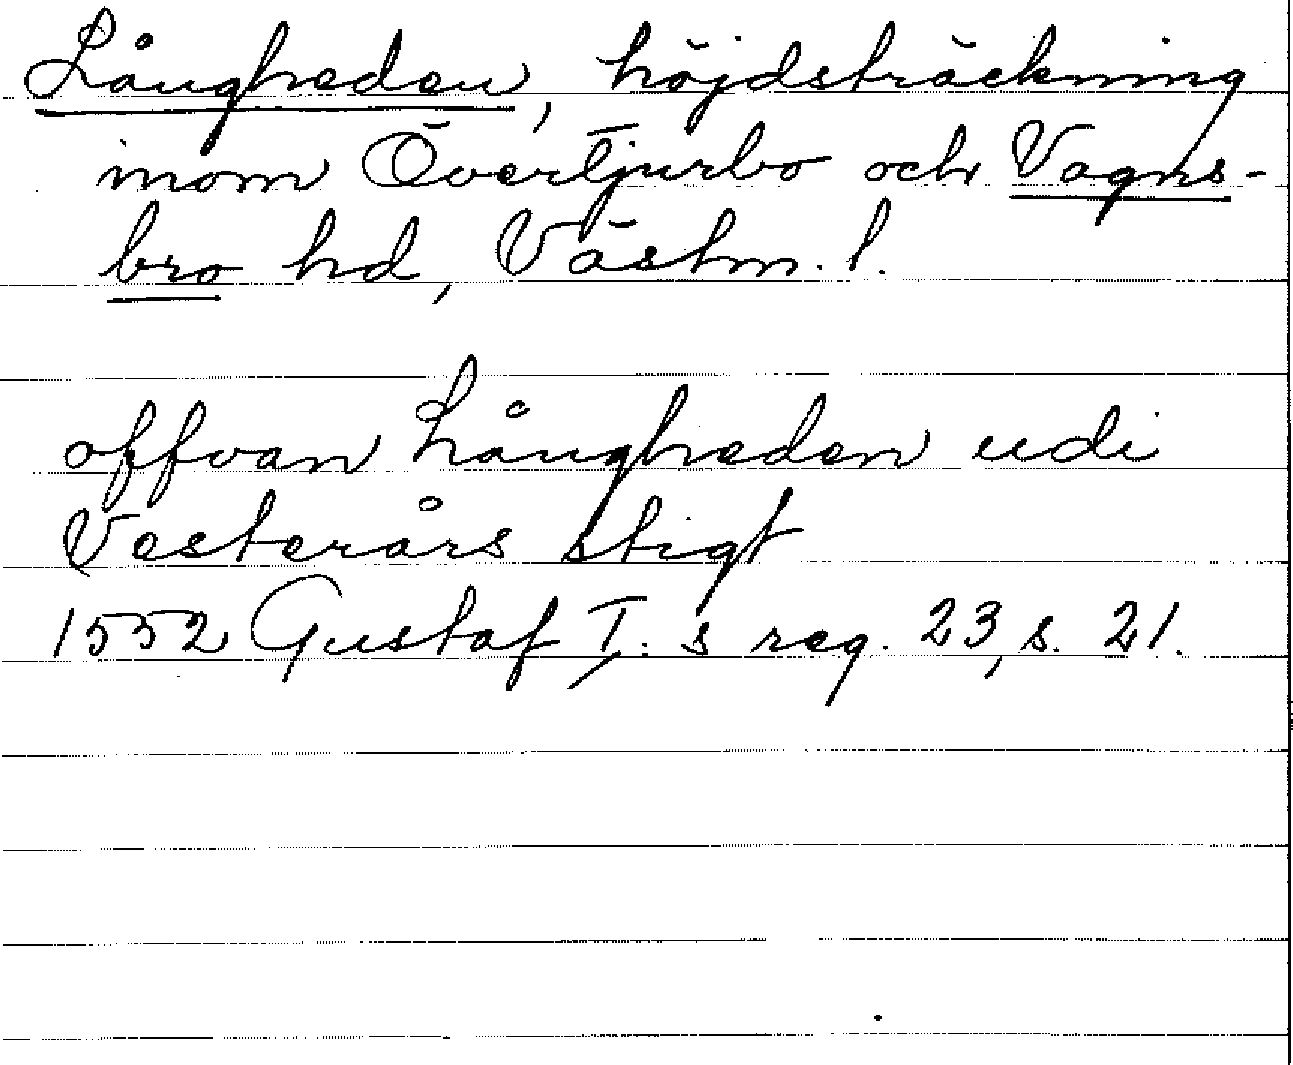 Långheden, höjdsträckning
inom Övertjurbo och Vagns-
bro hd, Västm. l.
offvan Långheden udi
Vesterårs stigt
1552 Gustaf I:s reg. 23, s. 21.